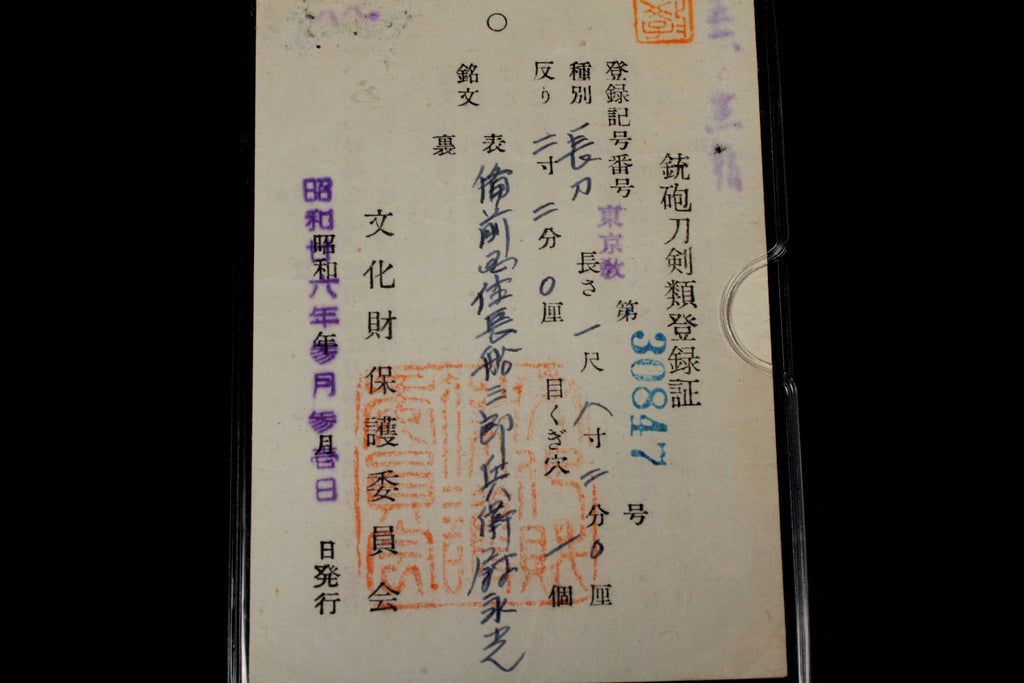 銃砲刀剣類登録証
登録記号番号 東京教 第 30847 号
種別 長刀 長さ 一尺八寸二分0厘
反り 二寸二分0厘 目くぎ穴 一個
銘文 表 備前西住長船三郎兵衛尉永光
裏
文化財保護委員会
昭和廿六年参月参日
昭和 年 月 日発行